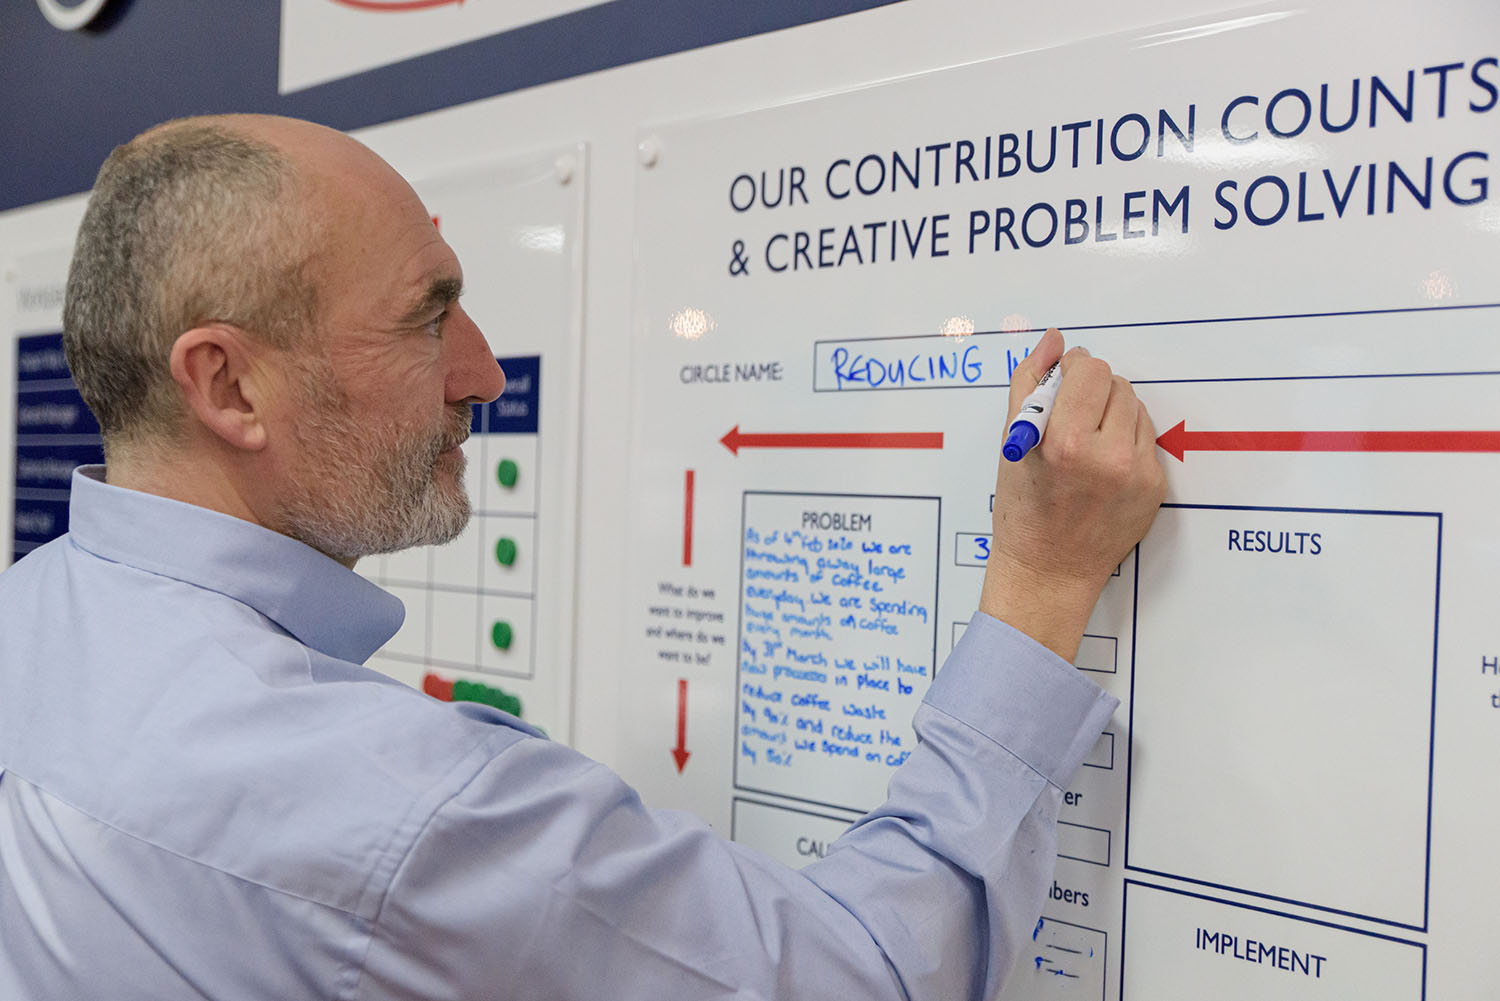 OUR CONTRIBUTION COUNTS
& CREATIVE PROBLEM SOLVING
CIRCLE NAME:
REDUCING
Overall
Status
PROBLEM
As of 4th Feb 2020 we are
throwing away large
amounts of coffee
everyday. We are spending
huge amounts on coffee
every month.
By 31st March we will have
new processes in place to
reduce coffee waste
by 90% and reduce the
amount we spend on
by 50%
What do we
want to improve
and where do we
want to be?
3
RESULTS
IMPLEMENT